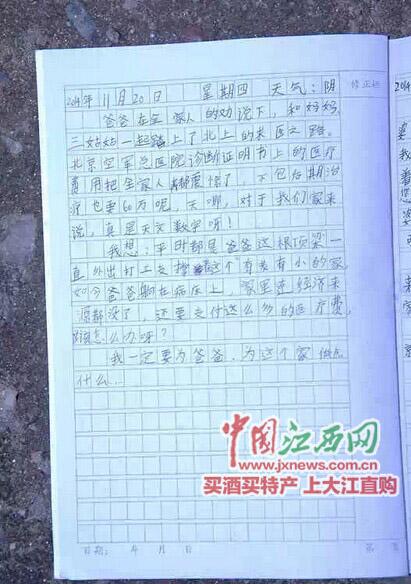 2014年11月20日 星期四 天气:阴
修正栏
2014
爸爸在全家人的劝说下,和妈妈、
三姑姑一起踏上了北上的求医之路。
北京空军总医院诊断证明书上的医疗
费用把全家人都震惊了,不包后期治
疗也要60万呢,天哪,对于我们家来
说,真是天文数字呀!
我想:平时都是爸爸这根顶梁一
直外出打工支撑着这个有老有小的家,
如今爸爸躺在病床上,家里连经济来
源都没了,还要支付这么多的医疗费,
该怎么办呀?
我一定要为爸爸、为这个家做点
什么…
中国江西网
www.jxnews.com.cn
买酒买特产 上大江直购
日期: 年 月 日
第 页